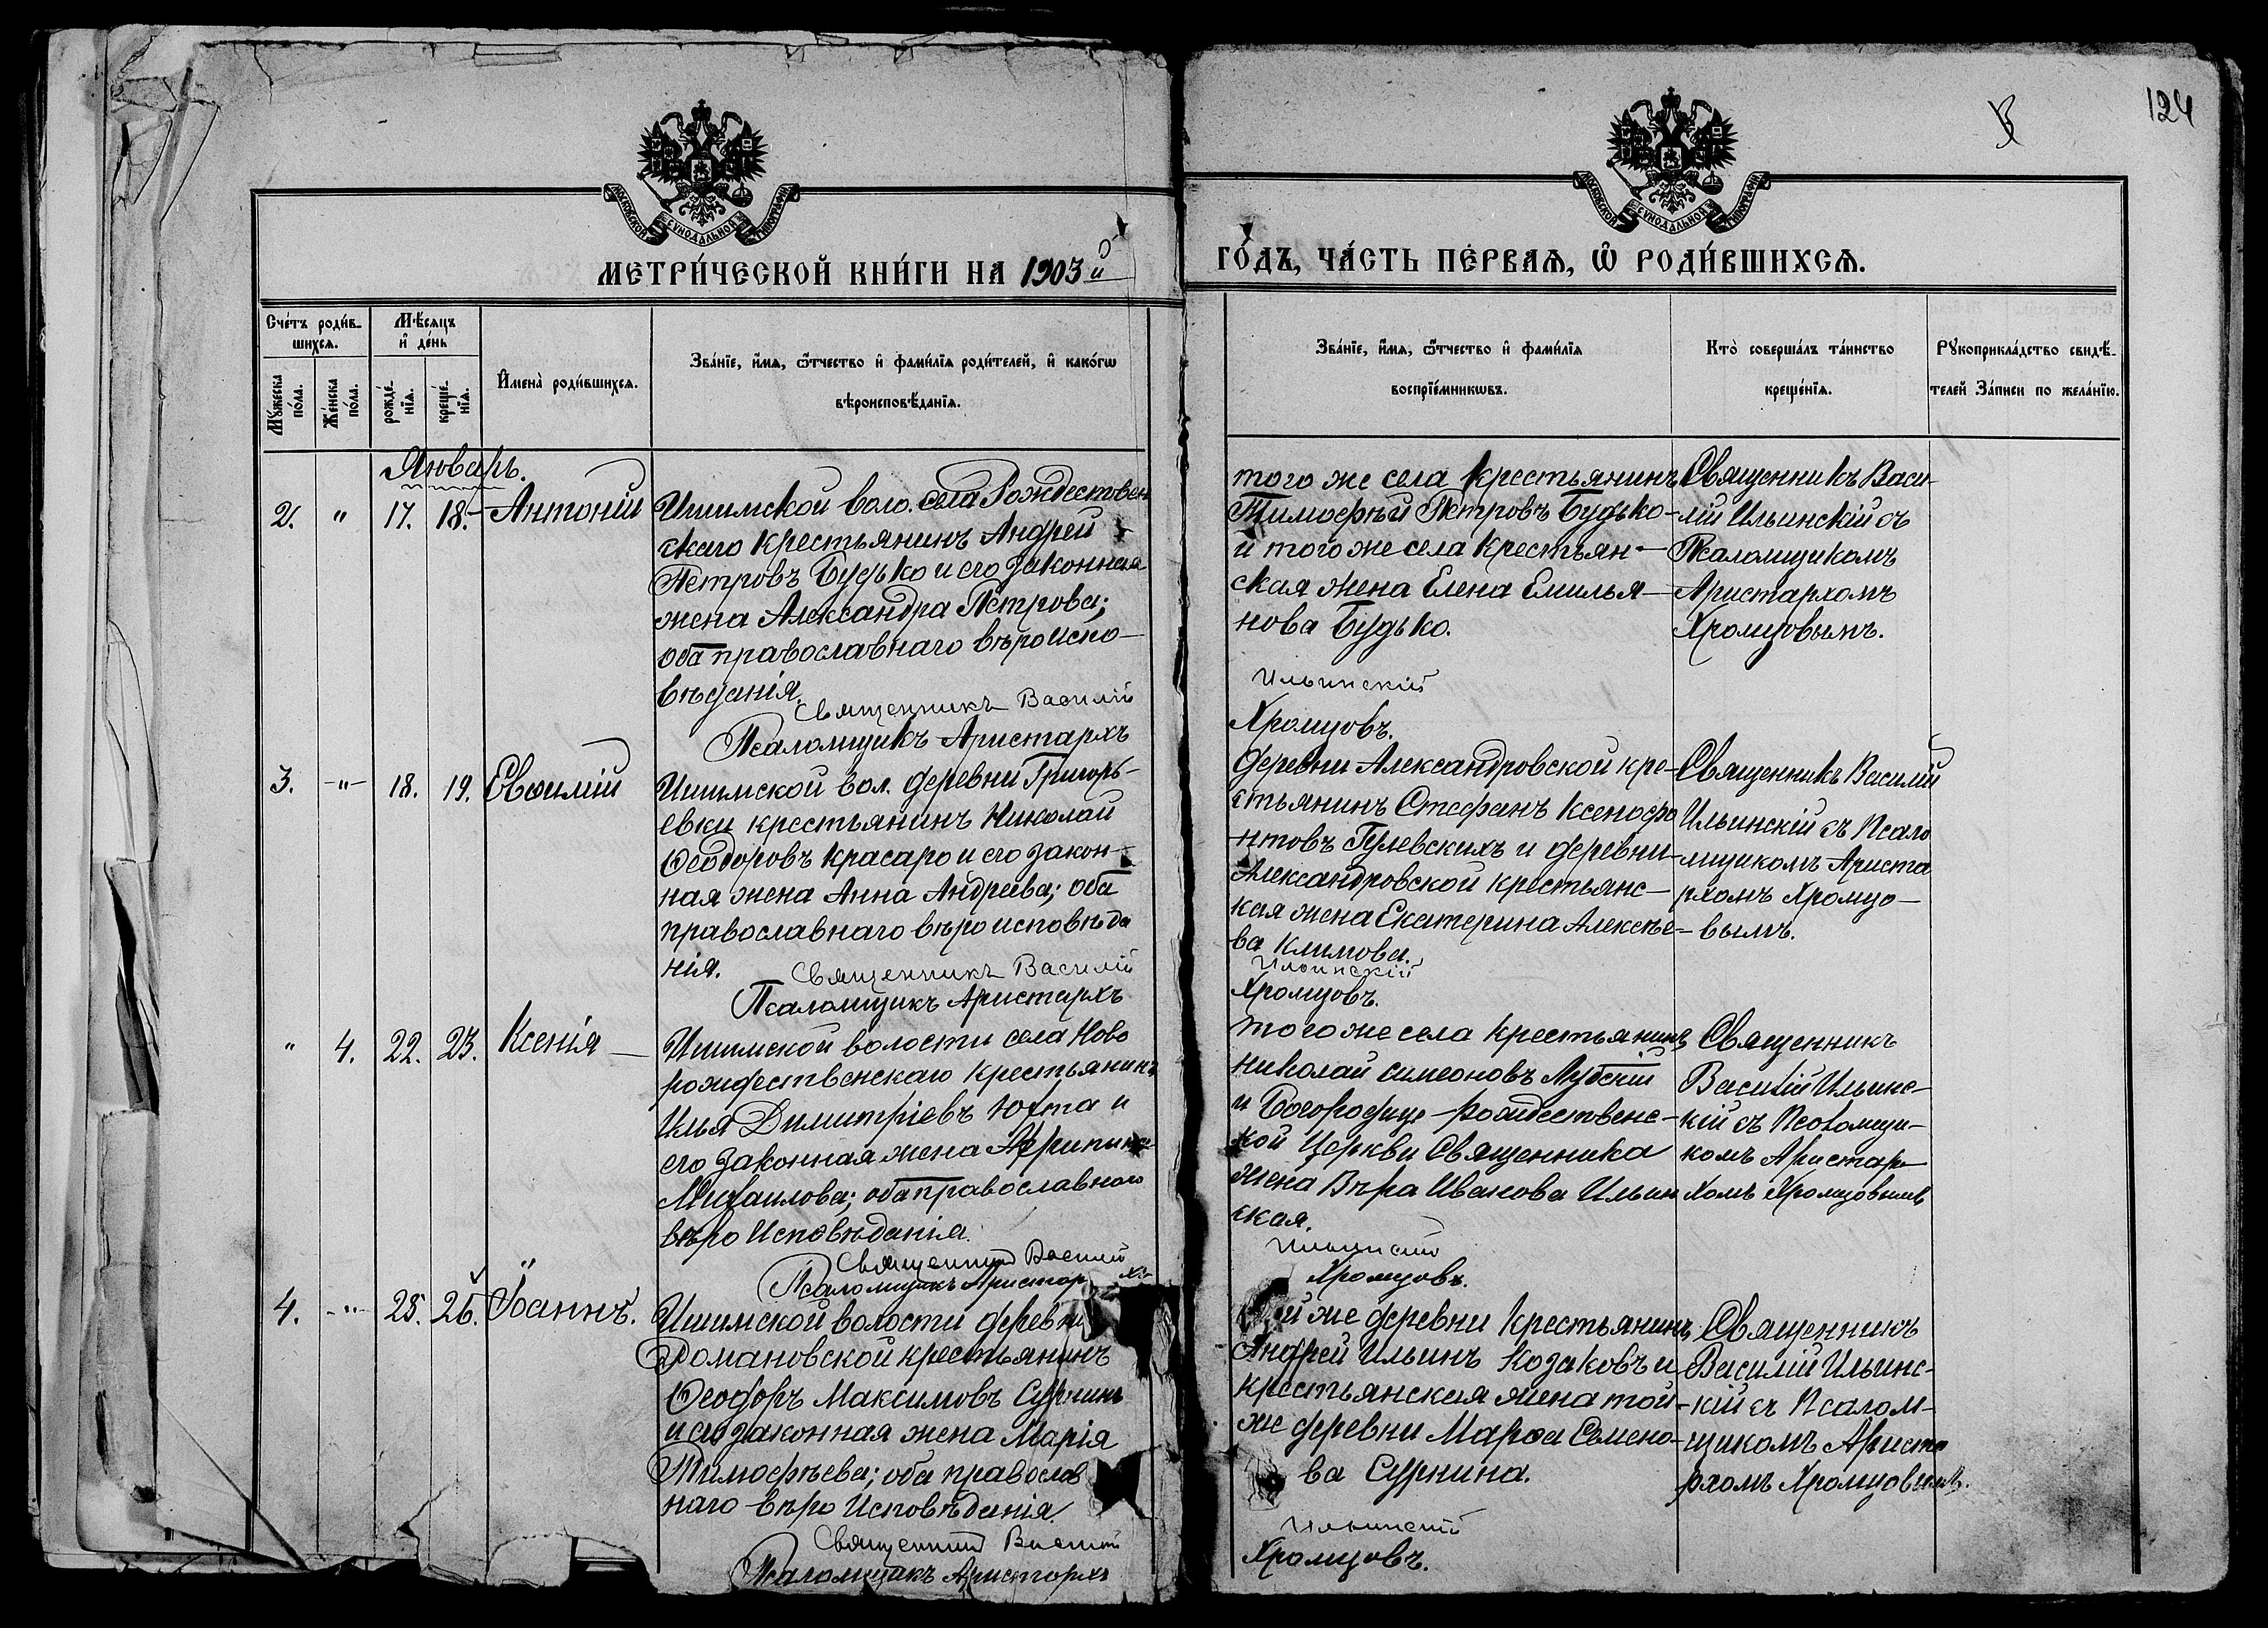 124
МОСКОВСКОЙ СУНОДАЛЬНОЙ ТИПОГРАФІИ
МОСКОВСКОЙ СУНОДАЛЬНОЙ ТИПОГРАФІИ
МЕТРИ́ЧЕСКОЙ КНИ́ГИ НА 1903й
ГО́ДЪ, ЧА́СТЬ ПЕ́РВАѦ, Ѡ РОДИ́ВШИХСѦ.
Сче́тъ роди́в-
шихсѧ.
Мѣ́сѧцъ
и де́нь
Му́жеска
по́ла.
Же́нска
по́ла.
рожде́-
нїѧ.
креще́-
нїѧ.
Имена̀ роди́вшихсѧ.
Зва́нїе, и́мѧ, ѻ́тчество и фами́лїѧ роди́телей, и како́гѡ
вѣроисповѣ́данїѧ.
Зва́нїе, и́мѧ, ѻ́тчество и фами́лїѧ
воспрїе́мникѡвъ.
Кто̀ соверша́лъ та́инство
креще́нїѧ.
Рꙋкоприкла́дство свидѣ́-
телей За́писи по жела́нїю.
Январь.
2. " 17. 18. Антоній
Ишимской воло. села Рождествен
скаго крестьянинъ Андрей
Петровъ Будько и его законная
жена Александра Петрова;
оба православнаго вѣроиспо-
вѣданія.
Священникъ Василій
Псаломщикъ Аристархъ
того же села крестьянинъ
Тимофѣй Петровъ Будько
и того же села крестьян-
ская жена Елена Емилья-
нова Будько.
Ильинскій
Хромцовъ.
Священникъ Васи-
лій Ильинскій съ
Псаломщикомъ
Аристархомъ
Хромцовымъ.
3. -"- 18. 19. Евѳимій
Ишимской вол. деревни Григорь-
евки крестьянинъ Николай
Ѳеодоровъ Красаро и его закон-
ная жена Анна Андреева; оба
православнаго вѣроисповѣда
нія.
Священникъ Василій
Псаломщикъ Аристархъ
деревни Александровской кре-
стьянинъ Стефанъ Ксенофо
нтовъ Гулевскихъ и деревни
Александровской крестьянс-
кая жена Екатерина Алексѣе-
ва Климова.
Ильинскій
Хромцовъ.
Священникъ Василій
Ильинскій съ Псало
мщикомъ Ариста
рхомъ Хромцо-
вымъ.
" 4. 22. 23. Ксенія
Ишимской волости села Ново
рождественскаго крестьянинъ
Илья Димитріевъ Юхта и
его законная жена Агрипина
Михаилова; оба православнаго
вѣро Исповѣданія.
Священникъ Василій
Псаломщикъ Аристархъ
того же села крестьянинъ
Николай Симеоновъ Лубскій
и Богородице-рождественс-
кой Церкви Священника
жена Вѣра Иванова Ильин
ская.
Ильинскій
Хромцовъ.
Священникъ
Василій Ильинс-
кій съ Псаломщи-
комъ Аристар-
хомъ Хромцовымъ
4. -"- 25. 26. Іоаннъ.
Ишимской волости деревни
Романовской крестьянинъ
Ѳеодоръ Максимовъ Сурнинъ
и его законная жена Марія
Тимофѣева; оба православ
наго вѣро Исповѣданія.
Священникъ Василій
Псаломщикъ Аристархъ
й же деревни Крестьянинъ
Андрей Ильинъ Козаковъ и
крестьянская жена той-
же деревни Марѳа Семено-
ва Сурнина.
Ильинскій
Хромцовъ.
Священникъ
Василій Ильинс-
кій съ Псалом-
щикомъ Ариста
рхомъ Хромцовымъ.